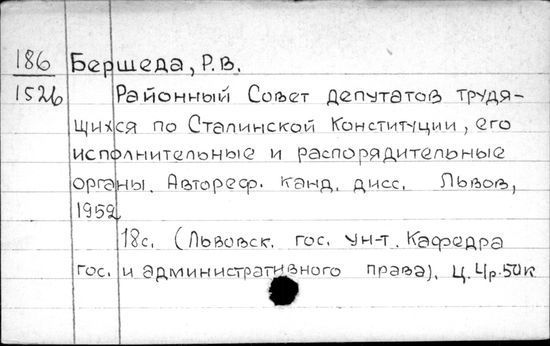 186 Бершеда, Р.В.
1526 Районный Совет депутатов трудя-
щихся по Сталинской Конституции, его
исполнительные и распорядительные
органы. Автореф. канд. дисс. Львов,
1952
18с. (Львовск. гос. ун-т. Кафедра
гос. и административного права). Ц. 4р.50к